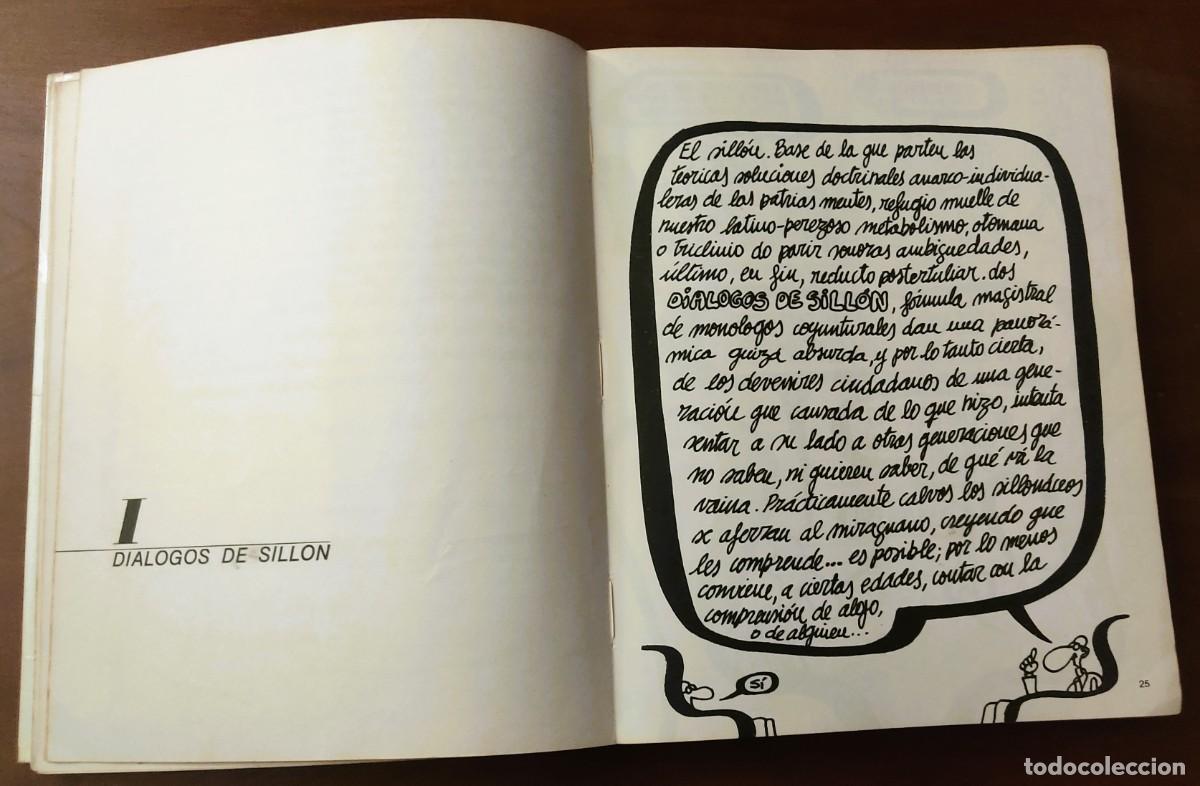 I
DIALOGOS DE SILLON
El sillón. Base de la que parten las
teoricas soluciones doctrinales anarco-individua-
leras de las patrias mentes, refugio muelle de
nuestro latino-perezoso metabolismo, otomana
o triclinio do parir sonoras ambiguedades,
último, en fin, reducto postertuliar. dos
DiALOGOS DE SillÓN, fórmula magistral
de monologos coyunturales dan una panorá-
mica quizá absurda, y por lo tanto cierta,
de los devenires ciudadanos de una gene-
ración que cansada de lo que hizo, intenta
sentar a su lado a otras generaciones que
no saben, ni quieren saber, de qué vá la
vaina. Prácticamente calvos los sillonáceos
se aferran al miraguano, creyendo que
les comprende... es posible; por lo menos
conviene, a ciertas edades, contar con la
comprensión de algo,
o de alguien...
Sí
25
todocoleccion